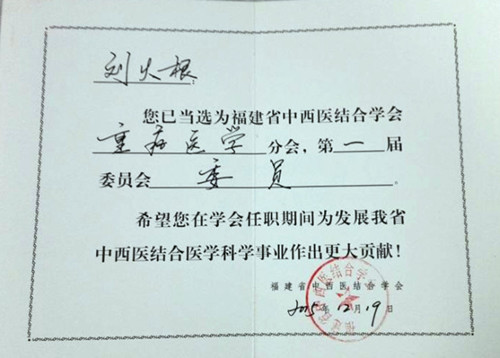 刘火根：
您已当选为福建省中西医结合学会
重症医学分会，第一届
委员会 委员
希望您在学会任职期间为发展我省
中西医结合医学科学事业作出更大贡献！
福建省中西医结合学会
2015年12月19日